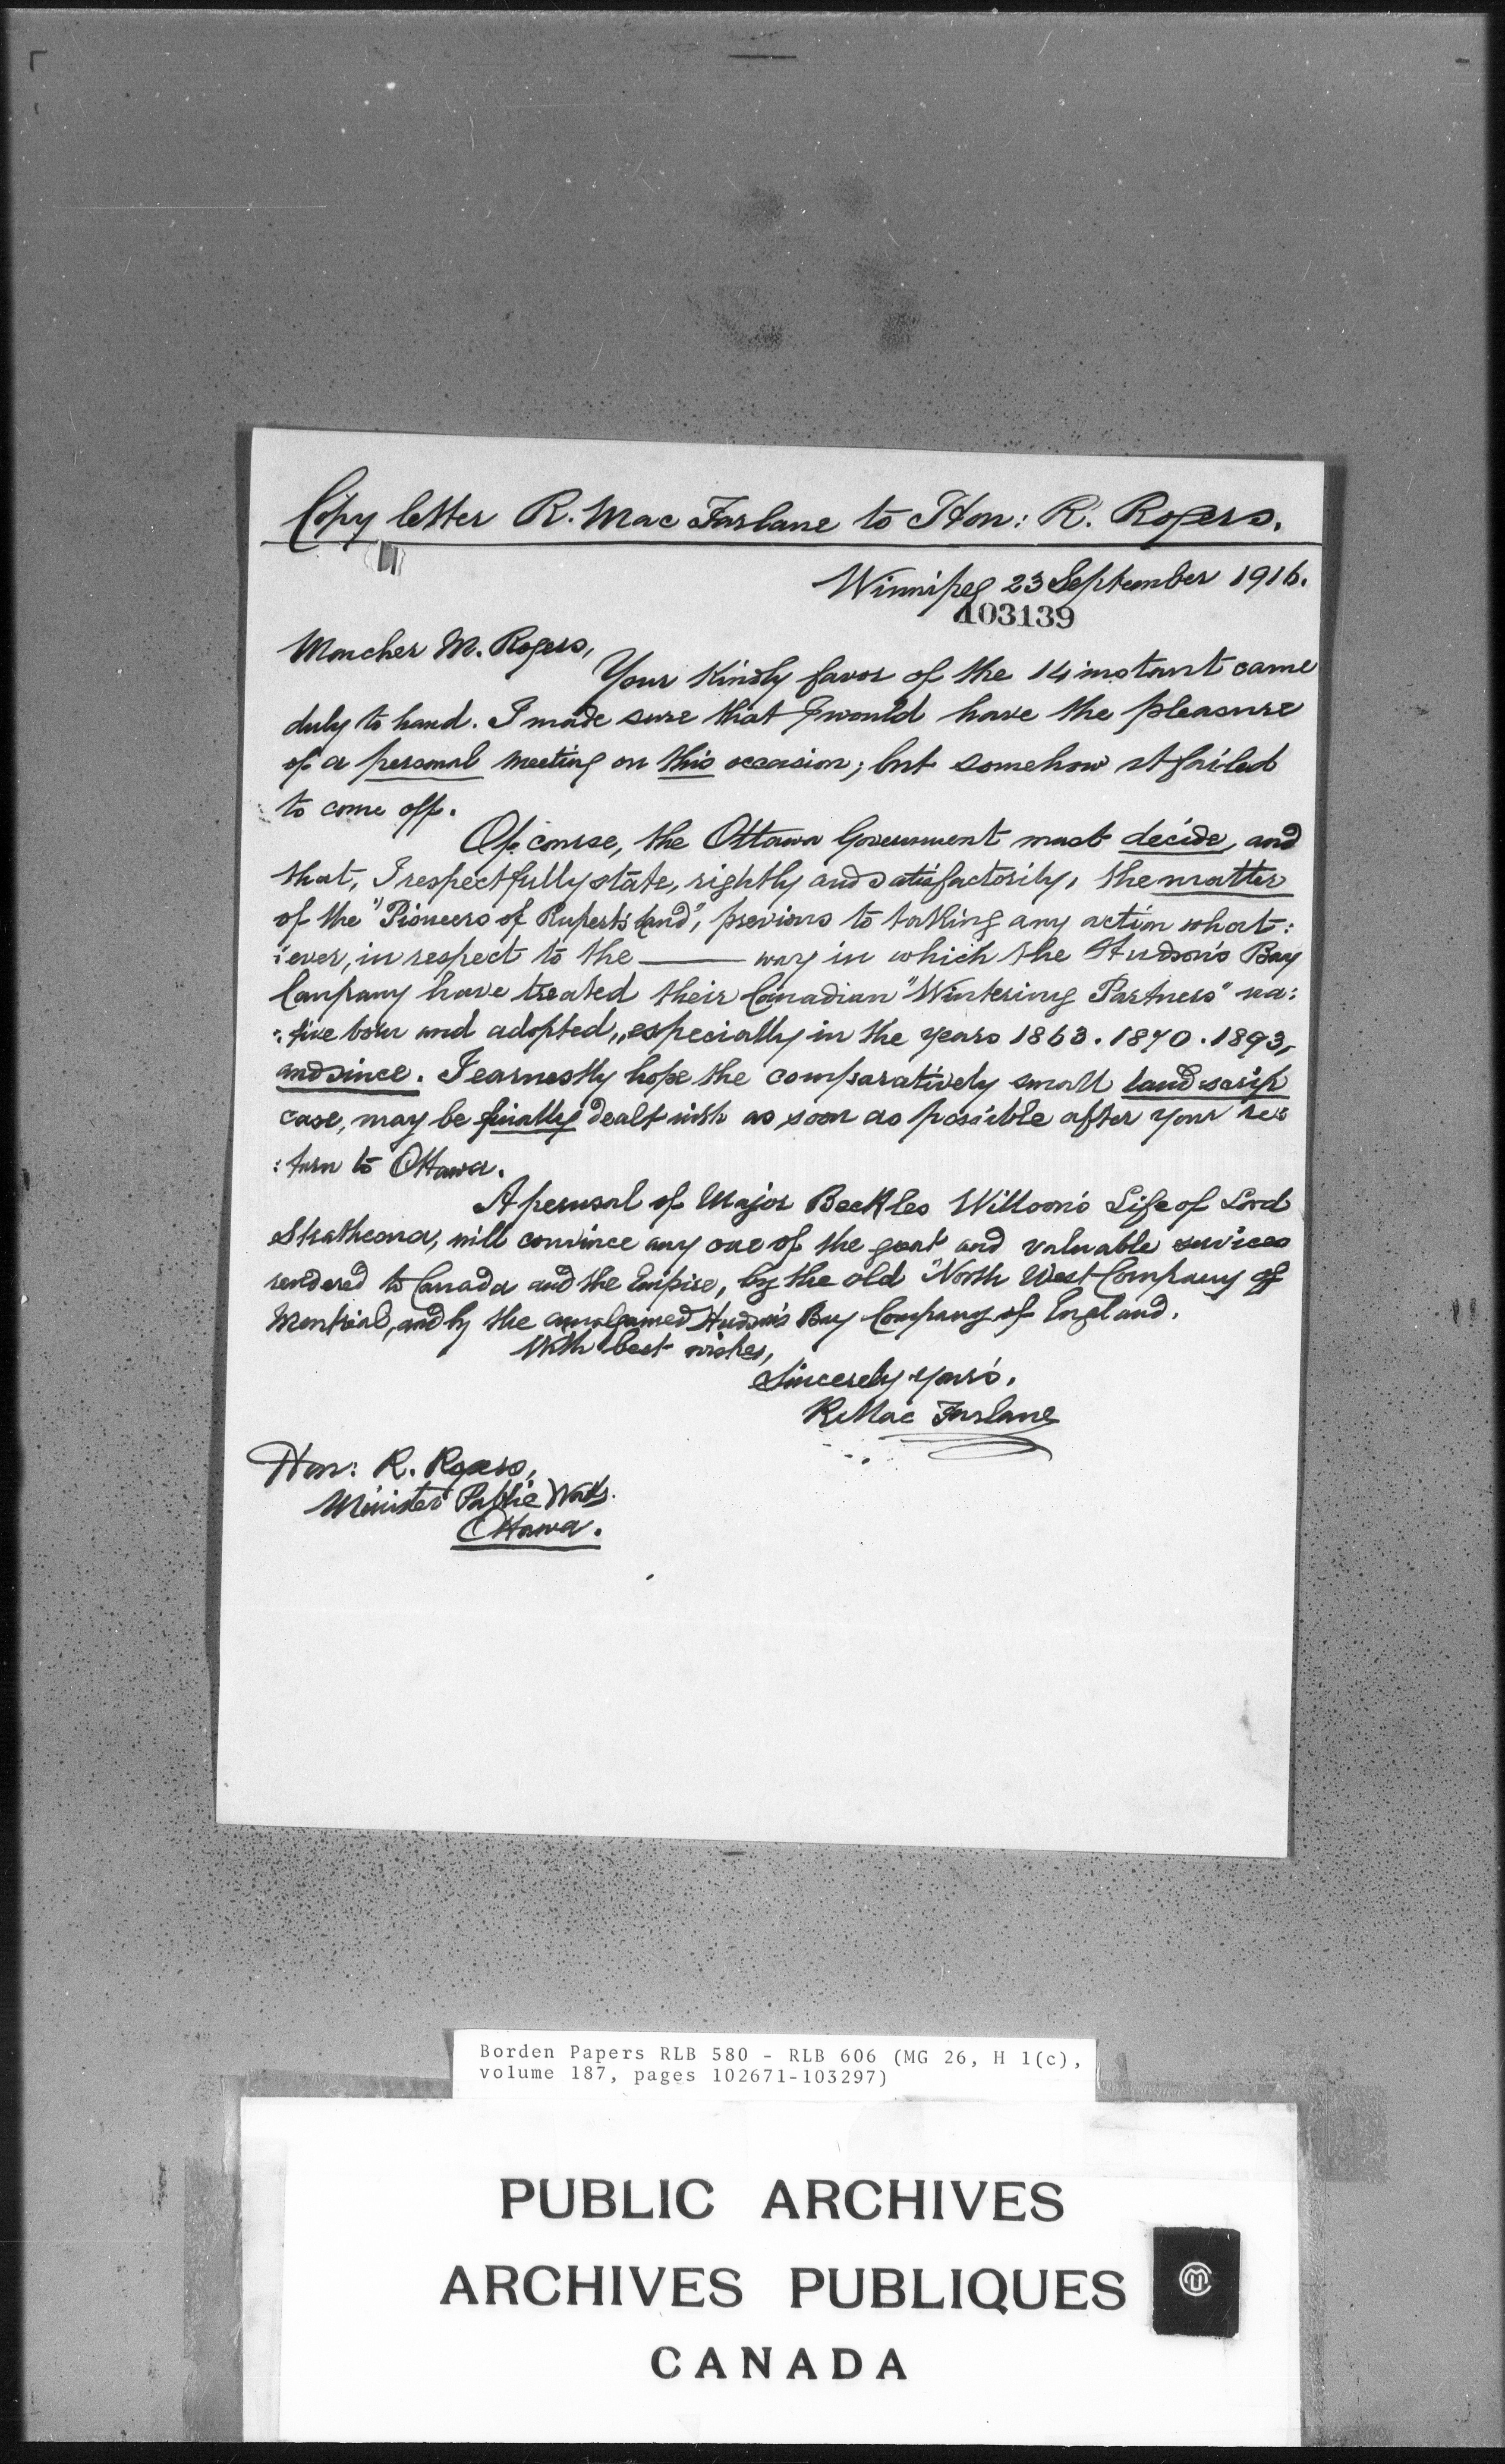 Copy letter R. Mac Farlane to Hon: R. Rogers.
Winnipeg 23 September 1916.
103139
Moncher M. Rogers,
Your kindly favor of the 14 instant came
duly to hand. I made sure that I would have the pleasure
of a personal meeting on this occasion; but somehow it failed
to come off.
Of course, the Ottawa Government must decide, and
that, I respectfully state, rightly and satisfactorily, the matter
of the "Pioneers of Ruperts Land", previous to taking any action what:
:ever, in respect to the ——— way in which the Hudson's Bay
Company have treated their Canadian "Wintering Partners" na:
:tive born and adopted, especially in the years 1863. 1870. 1893,
and since. I earnestly hope the comparatively small land scrip
case, may be finally dealt with as soon as possible after your re:
:turn to Ottawa.
A perusal of Major Beckles Willson's Life of Lord
Strathcona, will convince any one of the great and valuable services
rendered to Canada and the Empire, by the old "North West Company of
Montreal, and by the amalgamed Hudson's Bay Company of England.
With best wishes,
Sincerely yours.
R. Mac Farlane
Hon: R. Rogers,
Minister Public Works.
Ottawa.
Borden Papers RLB 580 - RLB 606 (MG 26, H 1(c),
volume 187, pages 102671-103297)
PUBLIC ARCHIVES
ARCHIVES PUBLIQUES
CANADA